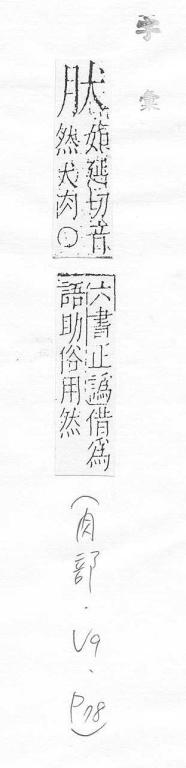 字彙
肰
如延切音
然犬肉○
六書正譌借為
語助俗用然
(肉部.V9、P78)